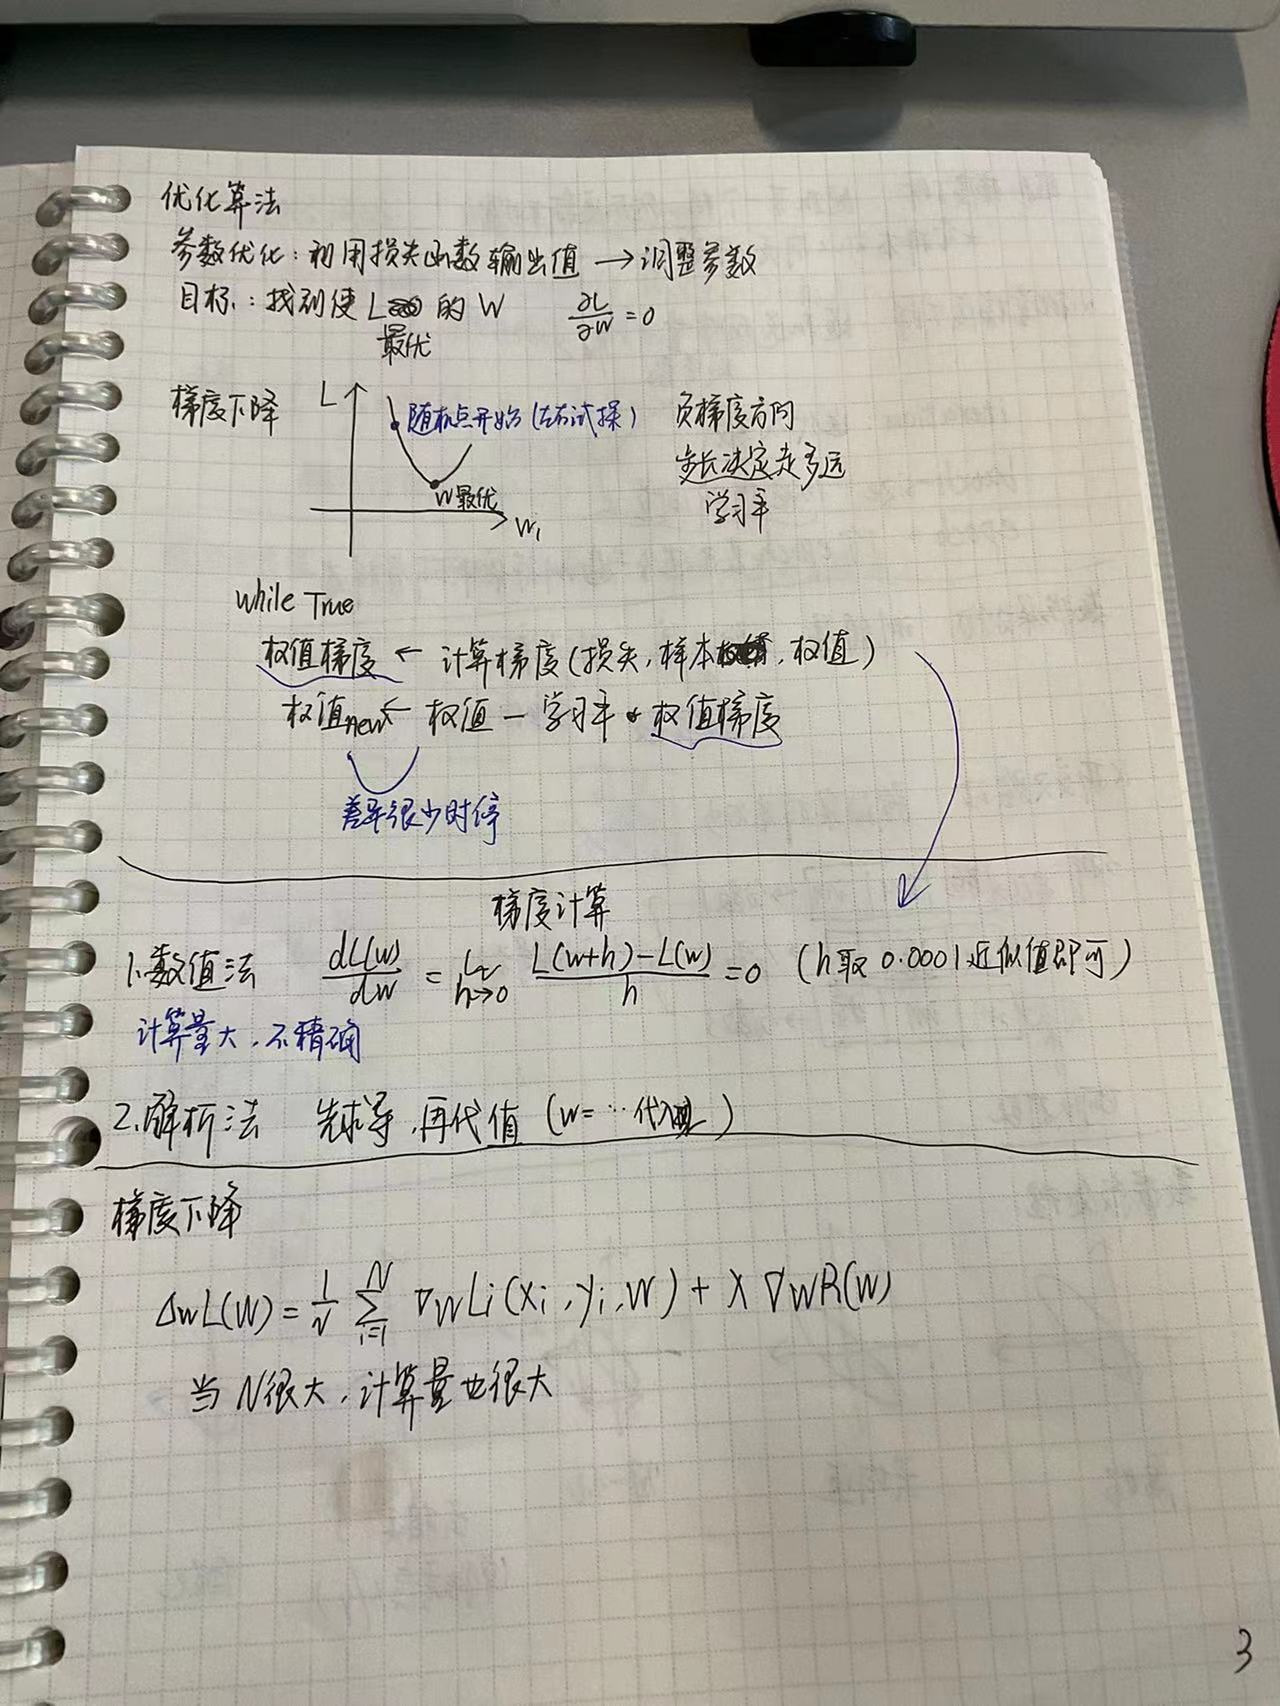 优化算法
参数优化：利用损失函数输出值 → 调整参数
目标：找到使 L 的 W ∂L/∂W = 0
最优
梯度下降 L 随机点开始（左右试探） 负梯度方向
步长决定走多远
W最优 学习率
W₁
while True
权值梯度 ← 计算梯度（损失，样本，权值）
权值new ← 权值 － 学习率 * 权值梯度
差异很少时停
梯度计算
1.数值法 dL(w)/dw = lim h→0 (L(w+h)－L(w))/h = 0 （h取 0.0001 近似值即可）
计算量大，不精确
2.解析法 先求导，再代值（w=…代入）
梯度下降
ΔwL(W) = 1/N Σ_{i=1}^{N} ∇wLi(xi, yi, W) + λ∇wR(W)
当N很大，计算量也很大
3